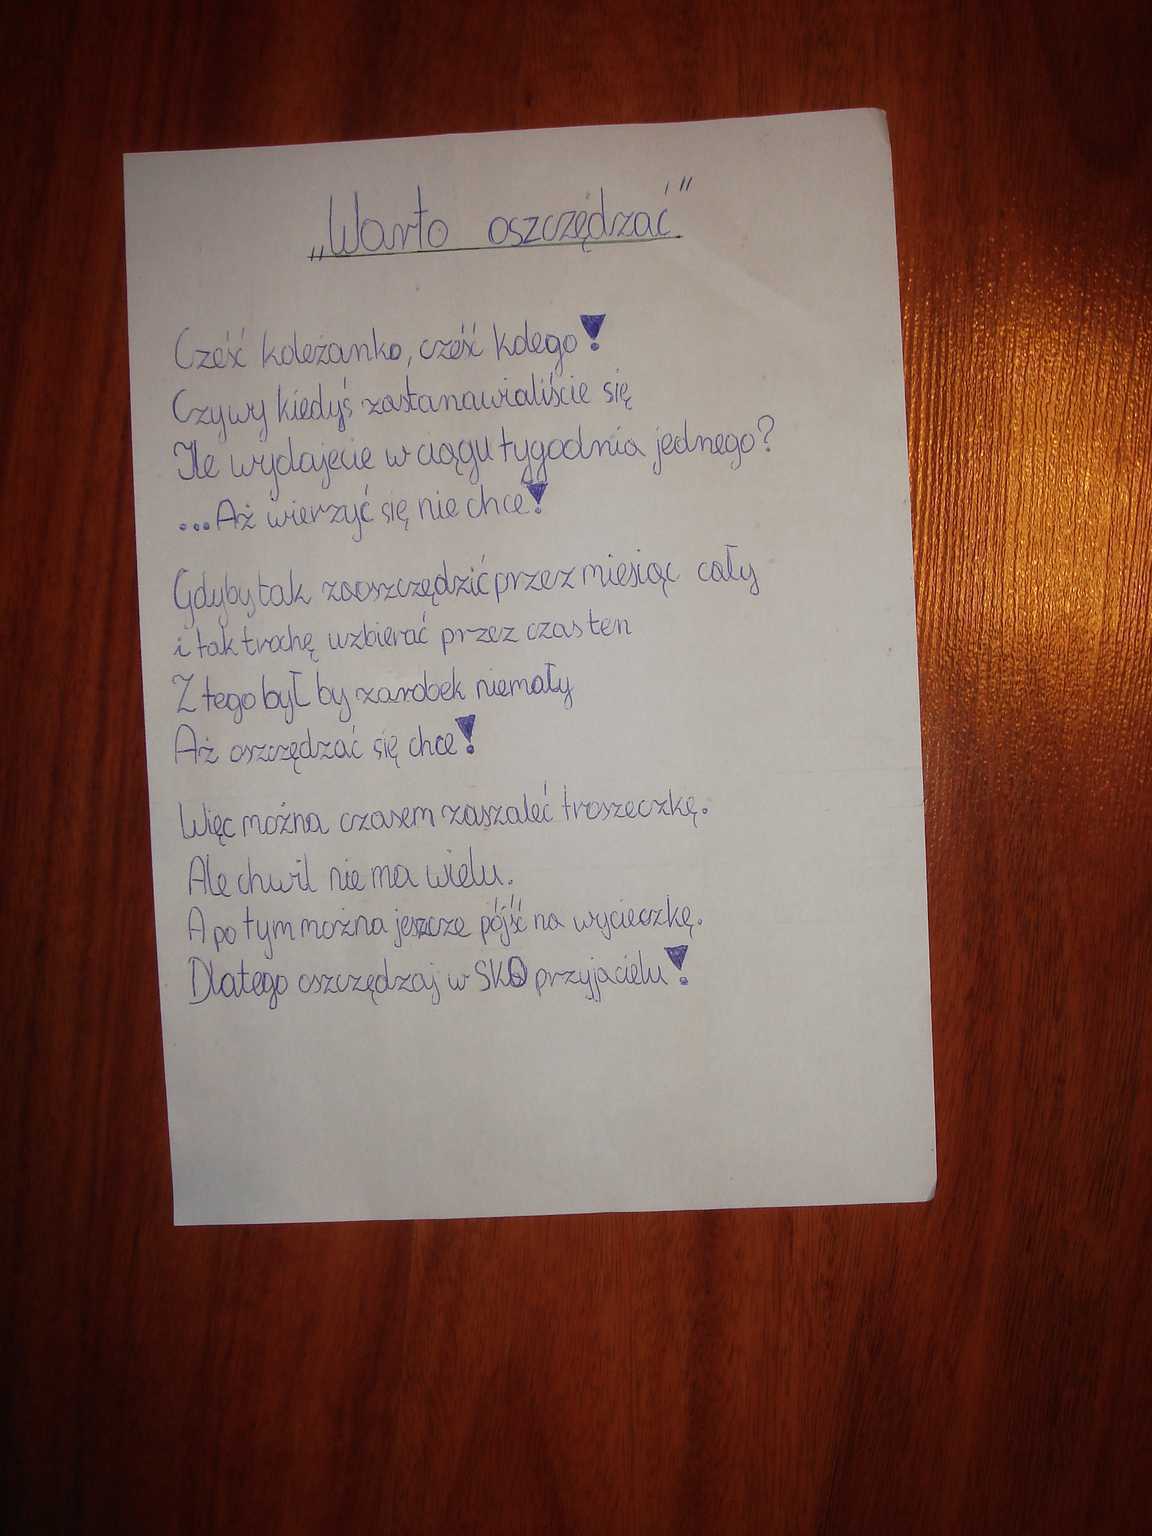 „Warto oszczędzać”
Cześć koleżanko, cześć kolego!
Czy wy kiedyś zastanawialiście się
Ile wydajecie w ciągu tygodnia jednego?
...Aż wierzyć się nie chce!
Gdyby tak zaoszczędzić przez miesiąc cały
i tak trochę uzbierać przez czas ten
Z tego był by zarobek niemały
Aż oszczędzać się chce!
Więc można czasem zaszaleć troszeczkę.
Ale chwil nie ma wielu.
A po tym można jeszcze pójść na wycieczkę.
Dlatego oszczędzaj w SKO przyjacielu!